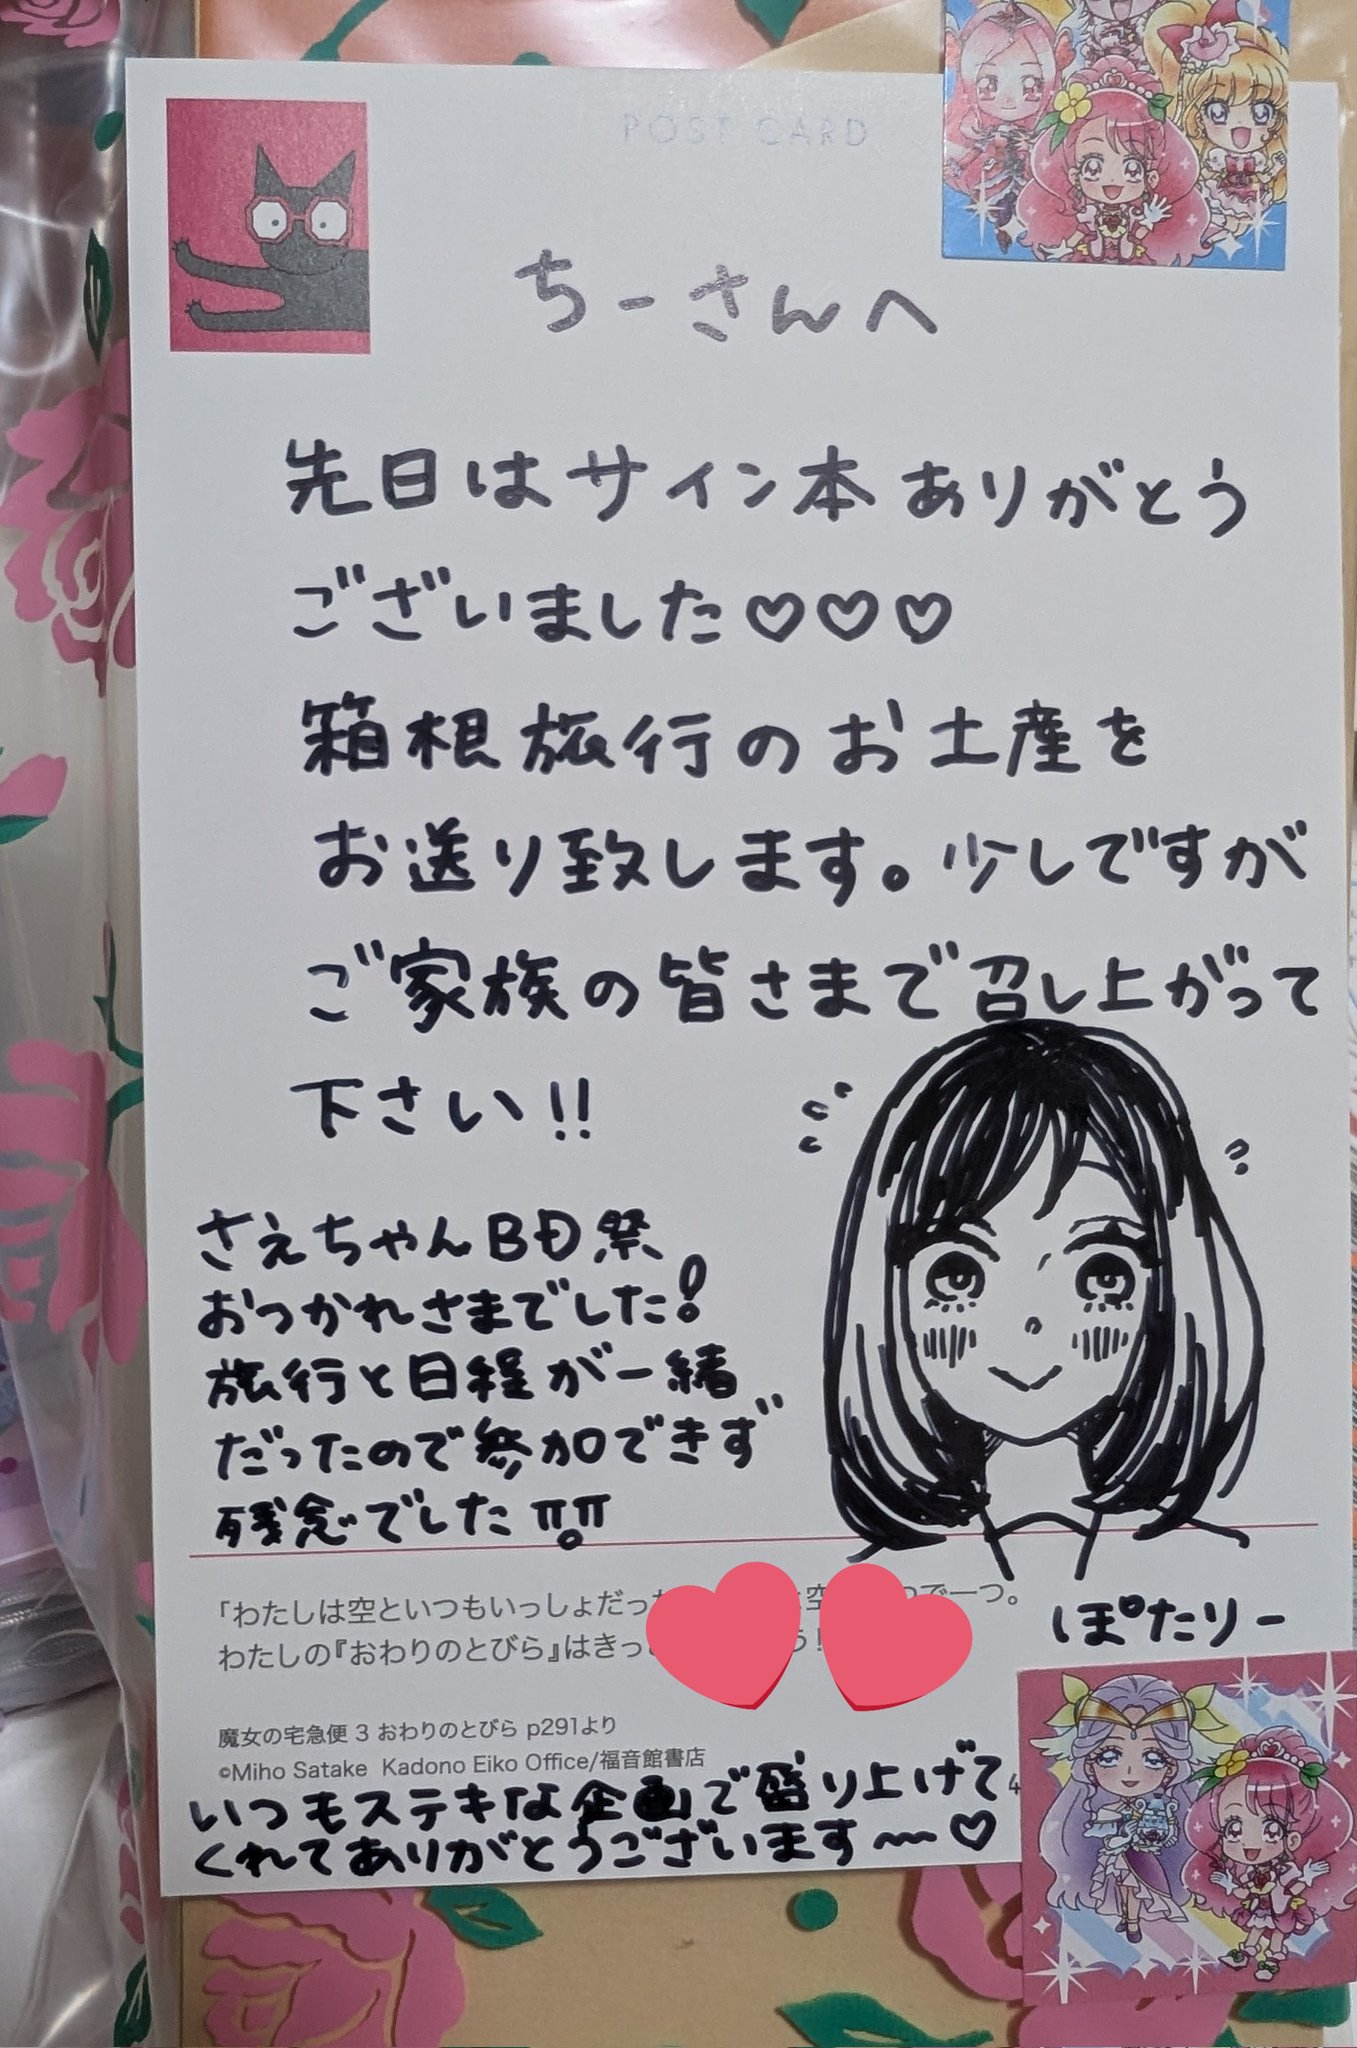 POST CARD
ちーさんへ
先日はサイン本ありがとう
ございました♡♡♡
箱根旅行のお土産を
お送り致します。少しですが
ご家族の皆さまで召し上がって
下さい!!
さえちゃんBD祭
おつかれさまでした!
旅行と日程が一緒
だったので参加できず
残念でした
ぽたりー
「わたしは空といつもいっしょだっ
わたしの『おわりのとびら』はきっ
魔女の宅急便 3 おわりのとびら p291より
©Miho Satake Kadono Eiko Office/福音館書店
いつもステキな企画で盛り上げて
くれてありがとうございます〜♡